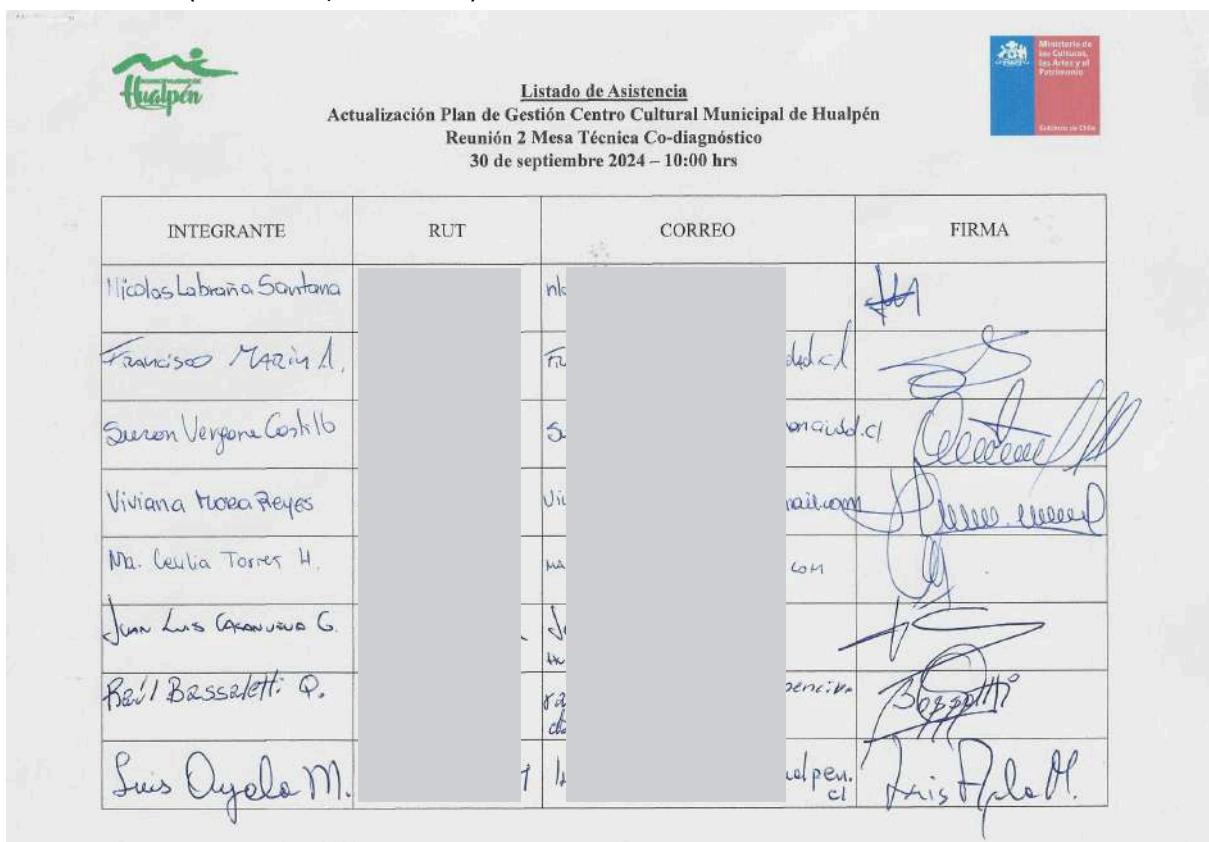 MUNICIPALIDAD DE
Hualpén
Ministerio de
las Culturas,
las Artes y el
Patrimonio
Gobierno de Chile
Listado de Asistencia
Actualización Plan de Gestión Centro Cultural Municipal de Hualpén
Reunión 2 Mesa Técnica Co-diagnóstico
30 de septiembre 2024 – 10:00 hrs
INTEGRANTE RUT CORREO FIRMA
Nicolas Labraña Santana
Francisco Marin A.
Suron Vergara Castillo
Viviana Mora Reyes
Ma. Cecilia Torres H. com
Juan Luis Casanueva G.
Raúl Bassaletti Q.
Luis Ayala M. Luis Ayala M.